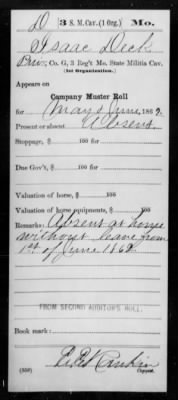 D 3 S. M. Cav. (1 Org.) Mo.
Isaac Deck
Pvt., Co. G, 3 Reg't Mo. State Militia Cav.
(1st Organization.)
Appears on
Company Muster Roll
for May & June, 1862.
Present or absent Absent
Stoppage, $ 100 for
Due Gov't, $ 100 for
Valuation of horse, $ 100
Valuation of horse equipments, $ 100
Remarks: Absent at home
without leave from
1st of June 1862
FROM SECOND AUDITOR'S ROLL.
Book mark:
Rankin
(359) Copyist.